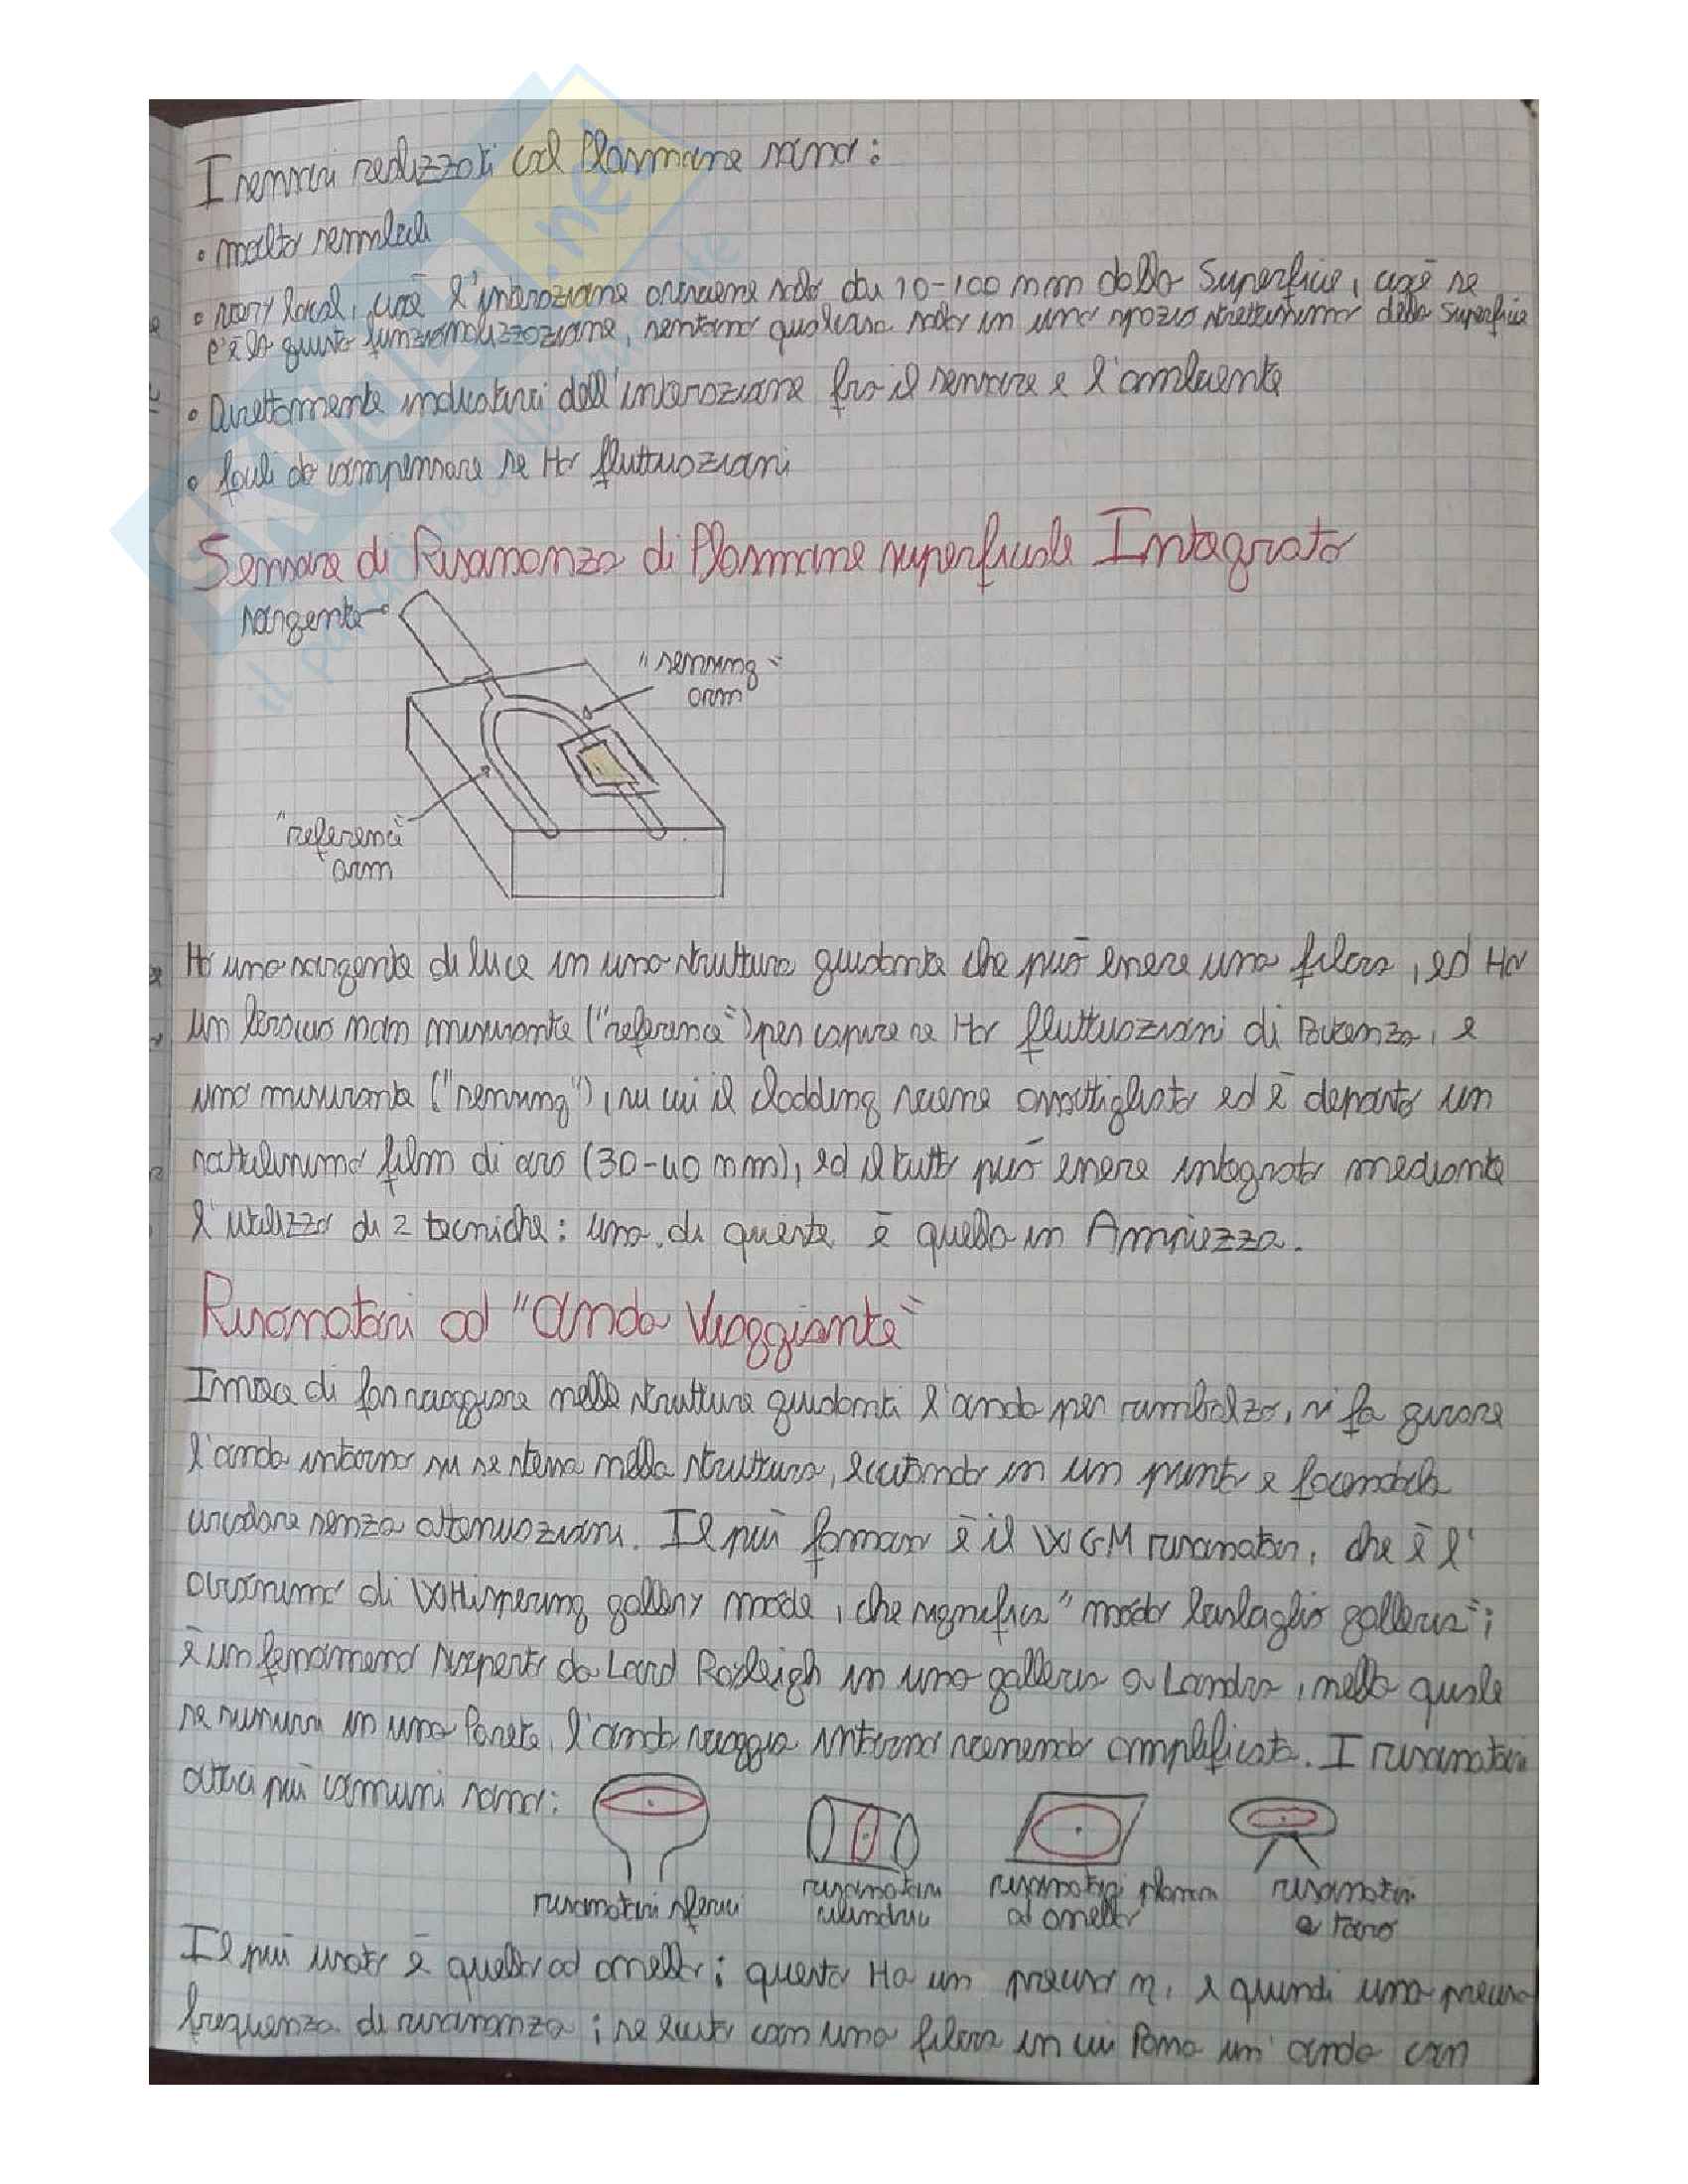 I sensori realizzati col Plasmone sono:
• molto sensibili
• very local, cioè l'interazione avviene solo da 10-100 nm dalla Superficie, cioè se
c'è la giusta funzionalizzazione, sentono qualcosa solo in uno spazio strettissimo della Superficie
• Direttamente indicativi dell'interazione fra il sensore e l'ambiente
• facili da compensare se Ho fluttuazioni
Sensore di Risonanza di Plasmone superficiale Integrato
sorgente
"sensing"
arm
"reference"
arm
Ho una sorgente di luce in una struttura guidante che può essere una fibra, ed Ho
un braccio non misurante ("reference") per capire se Ho fluttuazioni di Potenza, e
uno misurante ("sensing"), su cui il cladding viene assottigliato ed è deposto un
sottilissimo film di oro (30-40 nm), ed il tutto può essere integrato mediante
l'utilizzo di 2 tecniche: una di queste è quella in Ampiezza.
Risonatori ad "onda Viaggiante"
Invece di far viaggiare nelle strutture guidanti l'onda per rimbalzo, si fa girare
l'onda intorno su se stessa nella struttura, eccitando in un punto e facendola
circolare senza attenuazioni. Il più famoso è il WGM risonator, che è l'
acronimo di WHispering gallery mode, che significa "modo bisbiglio galleria";
è un fenomeno scoperto da Lord Rayleigh in una galleria a Londra, nella quale
se sussurri in una Parete, l'onda viaggia intorno venendo amplificata. I risonatori
ottici più comuni sono:
risonatori sferici
risonatori
cilindrici
risonatori planari
ad anello
risonatori
a toro
Il più usato è quello ad anello; questo Ha un preciso n, e quindi una precisa
frequenza di risonanza; se eccito con una fibra in cui Pono un'onda con
SKUOLA.net
il paradiso dello studente